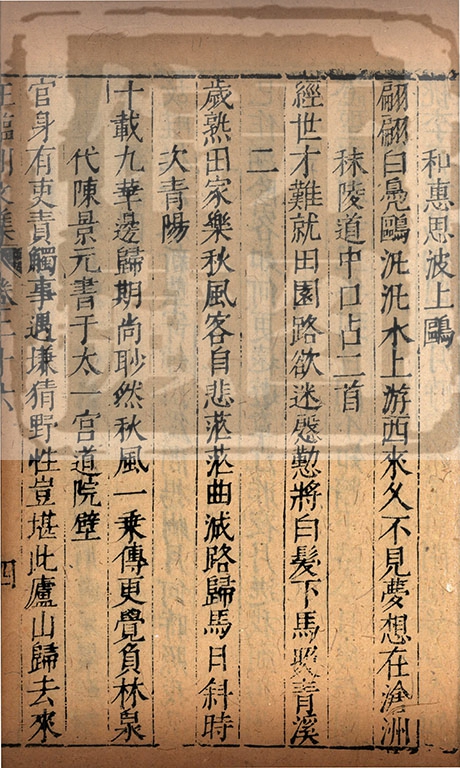 和惠思波上鷗
翩翩白鳧鷗汎汎水上游西來久不見夢想在滄洲
秣陵道中口占二首
經世才難就田園路欲迷慇懃將白髮下馬照青溪
二
歲熟田家樂秋風客自悲茫茫曲城路歸馬日斜時
次青陽
十載九華邊歸期尚眇然秋風一乗傳更覺負林泉
代陳景元書于太一宮道院壁
官身有吏責觸事遇嫌猜野性豈堪此廬山歸去來
王臨川文集 卷二十六 四